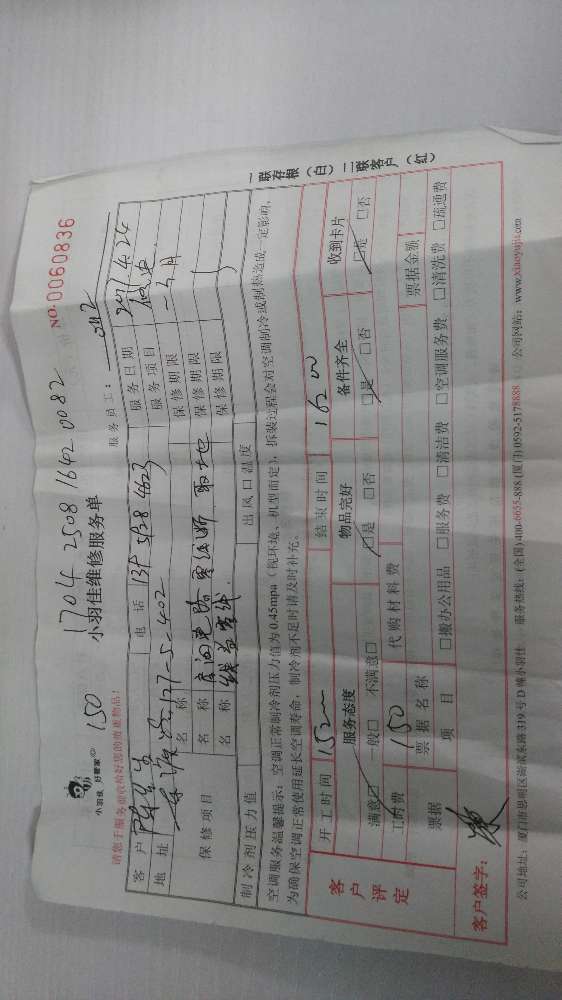 150 1704 2508 1642 0082
小羽佳 好管家
小羽佳维修服务单
NO. 0060836
请您于服务前收拾好您的贵重物品!
服务员工:
客户 陈先生 电话 服务日期
地址 127-5-402 服务项目
保修项目
名称 保修期限 一个月
名称 保修期限
名称 保修期限
制冷剂压力值 出风口温度
空调服务温馨提示:空调正常制冷剂压力值为0.45mpa(视环境、机型而定),拆装过程会对空调制冷或制热造成一定影响,
为确保空调正常使用延长空调寿命,制冷剂不足时请及时补充。
客户评定
开工时间 1520 结束时间 1620
服务态度 物品完好 备件齐全 收到卡片
满意□ 一般□ 不满意□ □是 □否 □是 □否 □是 □否
工时费 150 代购材料费
票据 票据名称 票据金额
项目 □搬办公用品 □服务费 □清洁费 □空调服务费 □清洗费 □疏通费
客户签字:
一联存根(白)二联客户(红)
公司地址:厦门市思明区湖滨东路319号D幢小羽佳 服务热线:(全国)400-6655-888 (厦门)0592-5178888 公司网站:www.xiaoyujia.com